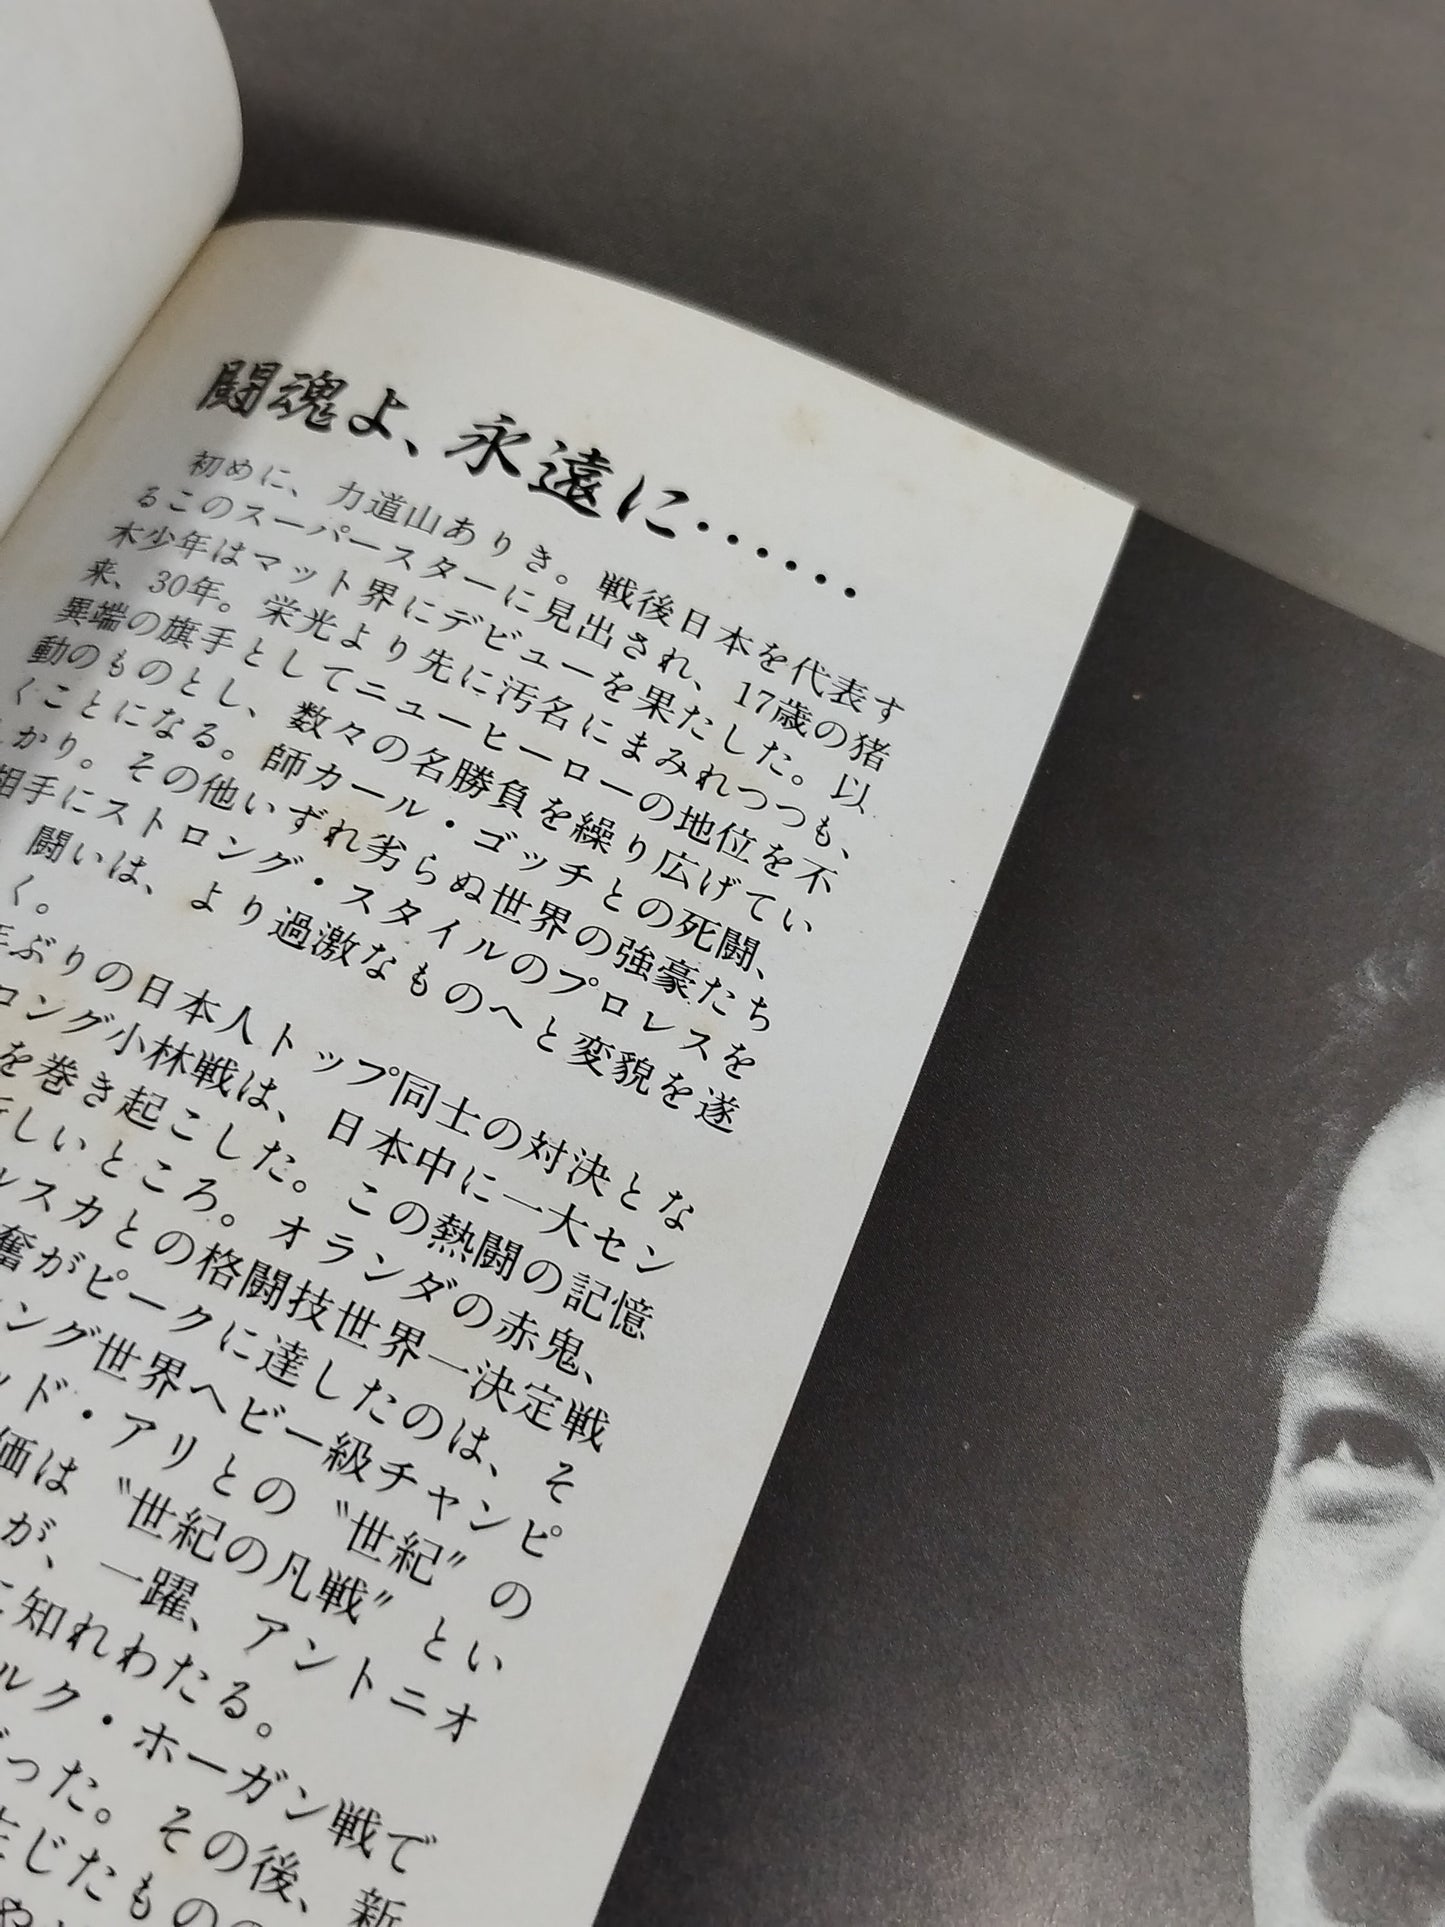 闘魂よ、永遠に・・・・・・
初めに、力道山ありき。戦後日本を代表す
るこのスーパースターに見出され、17歳の猪
木少年はマット界にデビューを果たした。以
来、30年。栄光より先に汚名にまみれつつも、
異端の旗手としてニューヒーローの地位を不
動のものとし、数々の名勝負を繰り広げてい
くことになる。師カール・ゴッチとの死闘、
かり。その他いずれ劣らぬ世界の強豪たち
相手にストロング・スタイルのプロレスを
闘いは、より過激なものへと変貌を遂
く。
ぶりの日本人トップ同士の対決とな
ロング小林戦は、日本中に一大セン
を巻き起こした。この熱闘の記憶
しいところ。オランダの赤鬼、
ルスカとの格闘技世界一決定戦
奮がピークに達したのは、そ
ング世界ヘビー級チャンピ
ッド・アリとの〝世紀〟の
価は〝世紀の凡戦〟とい
が、一躍、アントニオ
に知れわたる。
ルク・ホーガン戦で
った。その後、新
じたもの